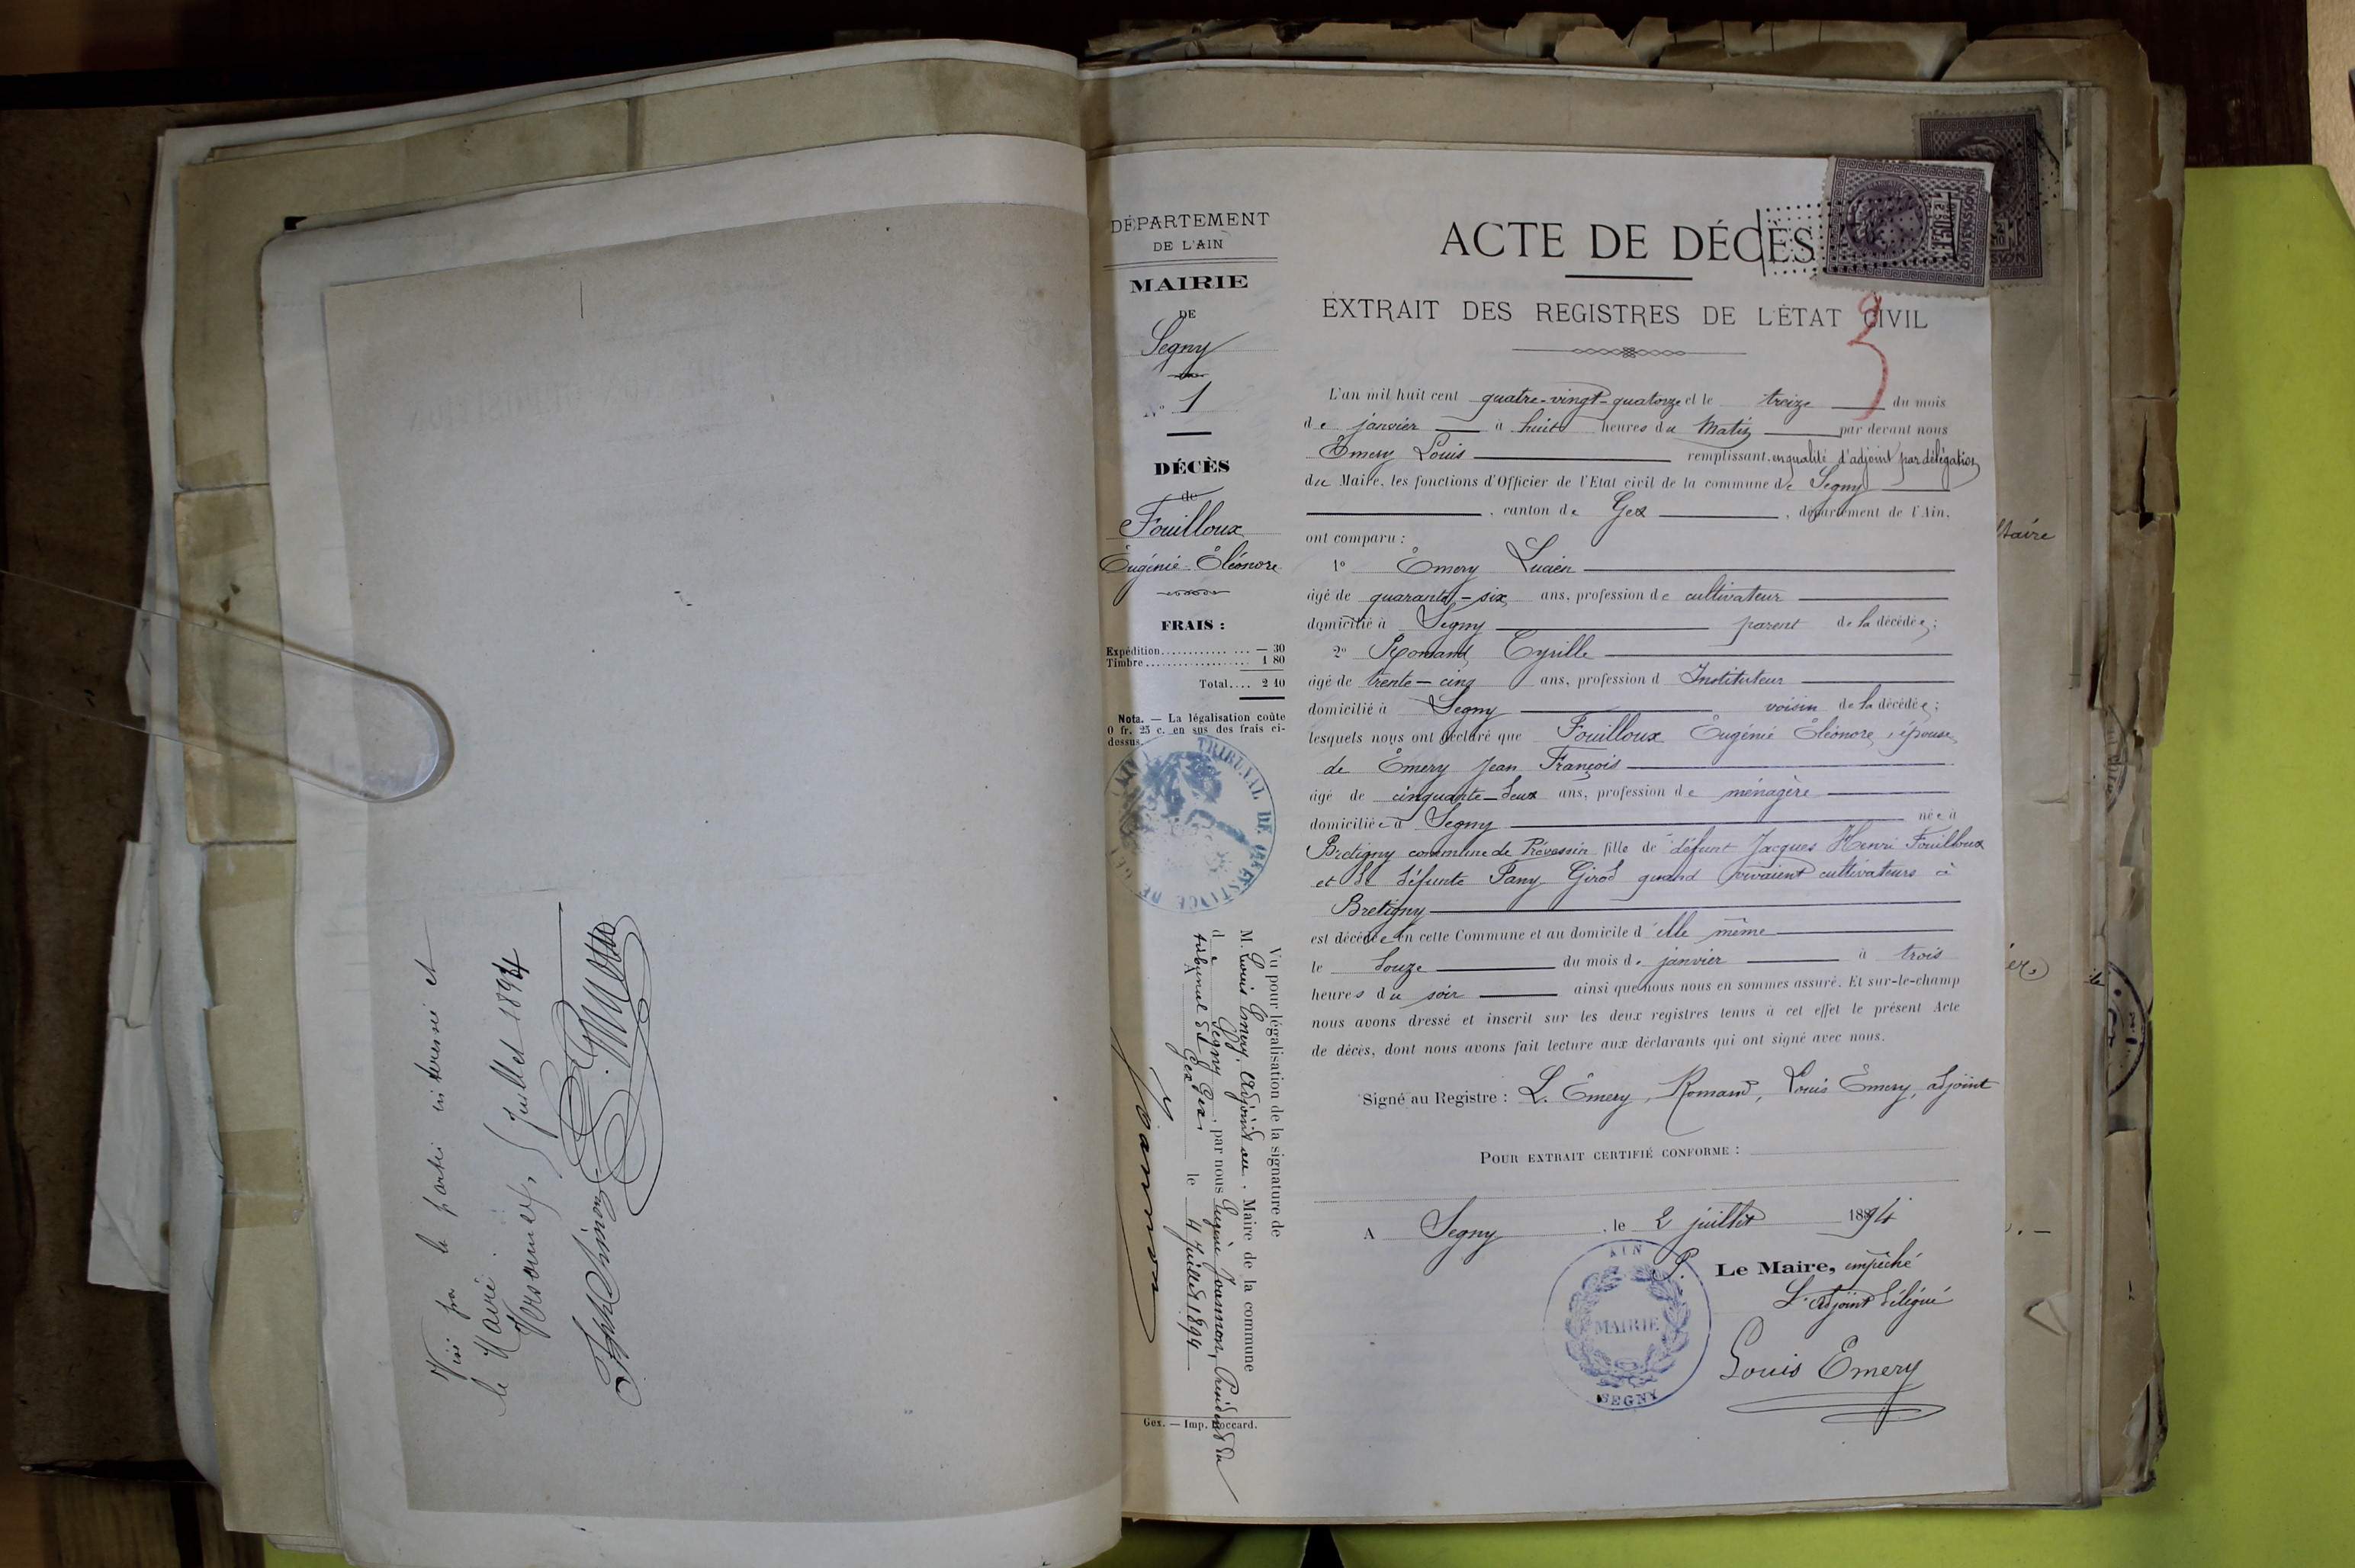 Visé par la partie intéressée et
le Maire
Versonnex, juillet 1894
Joseph Simon
DÉPARTEMENT
DE L'AIN
MAIRIE
DE
Segny
N° 1
DÉCÈS
de
Fouilloux
Eugénie Eléonore
FRAIS :
Expédition............ ... — 30
Timbre.................. 1 80
Total.... 2 10
Nota. — La légalisation coûte
0 fr. 25 c. en sus des frais ci-
dessus.
TRIBUNAL DE 1RE INSTANCE DE GEX (AIN)
Vu pour légalisation de la signature de
M. Louis Emery, adjoint au Maire de la commune
de Segny Gex, par nous Eugène Joannon, Président du
tribunal de Gex
A Gex le 4 juillet 1894
Joannon
Gex. — Imp. Boccard.
ACTE DE DÉCÈS
DIMENSION
EXTRAIT DES REGISTRES DE L'ÉTAT CIVIL
L'an mil huit cent quatre-vingt-quatorze et le treize du mois
de janvier à huit heures du Matin par devant nous
Emery Louis remplissant, en qualité d'adjoint par délégation
du Maire, les fonctions d'Officier de l'Etat civil de la commune de Segny
, canton de Gex , département de l'Ain,
ont comparu :
1° Emery Lucien
âgé de quarante-six ans, profession de cultivateur
domicilié à Segny parent de la décédée ;
2° Romand Cyrille
âgé de trente-cinq ans, profession d Instituteur
domicilié à Segny voisin de la décédée ;
lesquels nous ont déclaré que Fouilloux Eugénie Eléonore, épouse
de Emery Jean François
âgé de cinquante-deux ans, profession de ménagère
domiciliée à Segny née à
Bretigny commune de Prévessin fille de défunt Jacques Henri Fouilloux
et de défunte Pany Girod quand vivaient cultivateurs à
Bretigny
est décédée en cette Commune et au domicile d'elle même
le douze du mois de janvier à trois
heures du soir ainsi que nous nous en sommes assuré. Et sur-le-champ
nous avons dressé et inscrit sur les deux registres tenus à cet effet le présent Acte
de décès, dont nous avons fait lecture aux déclarants qui ont signé avec nous.
Signé au Registre : L. Emery, Romand, Louis Emery, adjoint
POUR EXTRAIT CERTIFIÉ CONFORME :
A Segny , le 2 juillet 1894
P. Le Maire, empêché
L'adjoint délégué
AIN
MAIRIE
SEGNY
Louis Emery